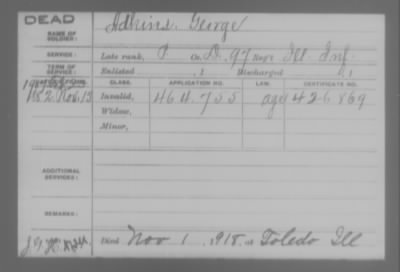 DEAD
NAME OF SOLDIER: Adkins, George
SERVICE: Late rank, P Co. D, 97 Reg't Ill. Inf.
TERM OF SERVICE: Enlisted , 1 Discharged , 1
CLASS. APPLICATION NO. LAW. CERTIFICATE NO.
Nov. 13 Invalid, 464.705 age 426869
Widow,
Minor,
ADDITIONAL SERVICES:
REMARKS:
Died Nov 1, 1918, at Toledo Ill